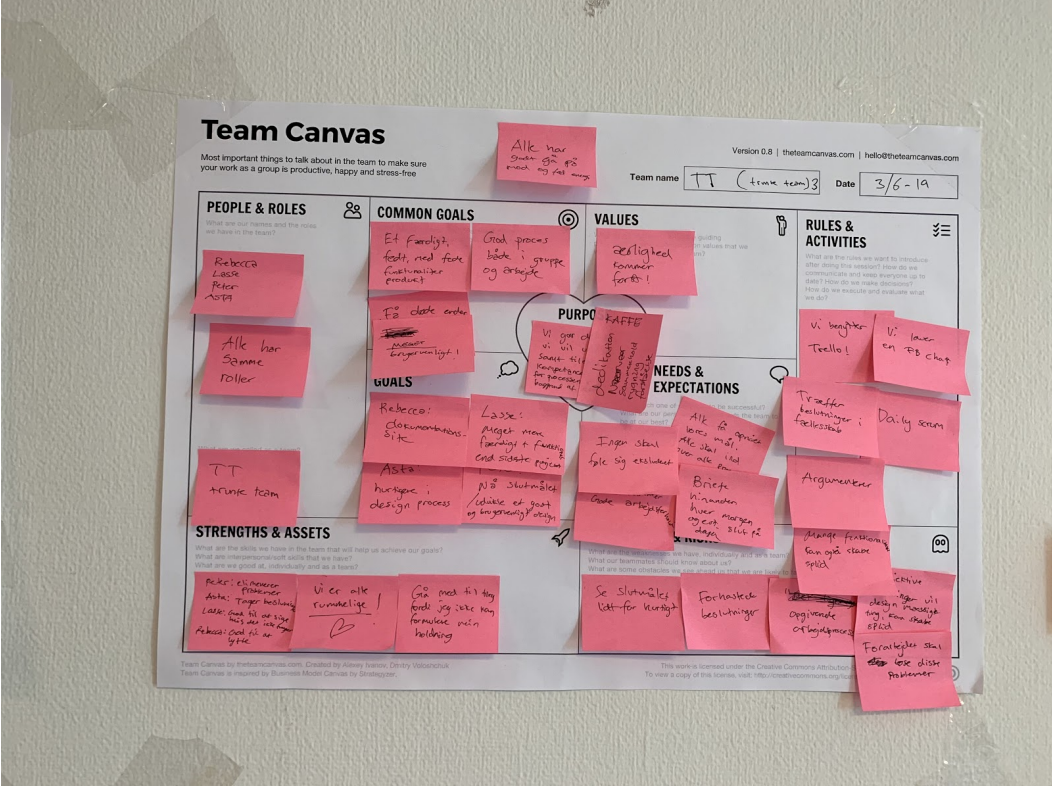 Team Canvas
Most important things to talk about in the team to make sure
your work as a group is productive, happy and stress-free
Alle har
Version 0.8 | theteamcanvas.com | hello@theteamcanvas.com
Team name
TT
Date
3/6-19
PEOPLE & ROLES
What are our names and the roles
we have in the team?
Rebecca
Lasse
Peter
ASTA
Alle har
samme
roller
TT
trunte team
COMMON GOALS
Et færdigt,
fedt, med fede
funktionalitet
produkt
God proces
både i gruppe
og arbejde
Få døde ender
brugervenligt!
VALUES
guiding
values that we
ærlighed
kommer
først!
PURPO
Vi gør d
vi vil
samt til
KAFFE
RULES &
ACTIVITIES
What are the rules we want to introduce
after doing this session? How do we
communicate and keep everyone up to
date? How do we make decisions?
How do we execute and evaluate what
we do?
Vi benytter
Trello!
Vi laver
en FB chat
Træffer
beslutninger i
fællesskab
Daily scrum
Argumenterer
Mange
kan også skabe
splid
GOALS
Rebecca:
dokumentations-
site
Lasse:
Meget mere
færdigt +
end sidste
Asta
hurtigere i
design process
Nå slutmålet
udvikle et godt
og brugervenligt design
NEEDS &
EXPECTATIONS
Ingen skal
føle sig ekskluderet
Gode
Alle
Briefe
hinanden
hver morgen
slut på
dagen
STRENGTHS & ASSETS
What are the skills we have in the team that will help us achieve our goals?
What are interpersonal/soft skills that we have?
What are we good at, individually and as a team?
Peter: eliminerer
Problemer
Asta: Tager
Lasse: God til at sige
hvis det ikke
Rebecca: God til at
lytte
Vi er alle
rummelige!
Gå med til ting
fordi jeg ikke kan
formulere min
holdning
we have, individually and as a team?
What our teammates should know about us?
What are some obstacles we see
Se slutmålet
lidt for hurtigt
Forhastede
beslutninger
Opgivende
design
ting, kan skabe
splid
Forarbejdet skal
løse disse
problemer
Team Canvas by theteamcanvas.com. Created by Alexey Ivanov, Dmitry Voloshchuk
Team Canvas is inspired by Business Model Canvas by Strategyzer.
This work is licensed under the Creative Commons Attribution-
To view a copy of this license, visit: http://creativecommons.org/